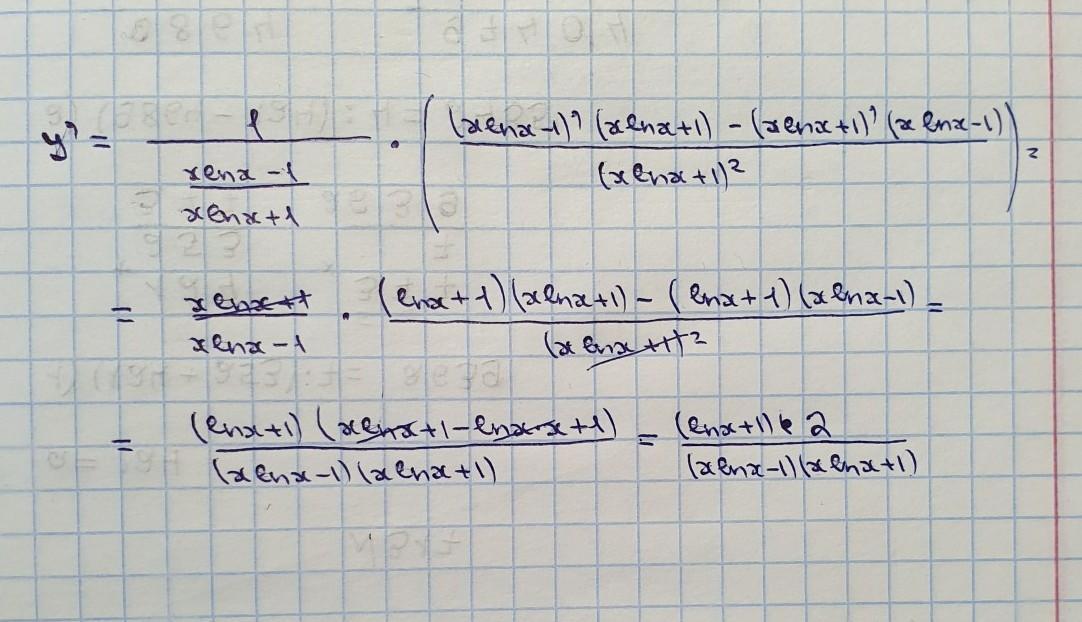 y' = 1 / ((xlnx - 1) / (xlnx + 1)) · ((xlnx-1)' (xlnx+1) - (xlnx+1)' (xlnx-1)) / (xlnx+1)² =
= (xlnx+1) / (xlnx-1) · ((lnx+1)(xlnx+1) - (lnx+1)(xlnx-1)) / (xlnx+1)² =
= (lnx+1) (xlnx+1-lnx·x+1) / (xlnx-1)(xlnx+1) = (lnx+1)·2 / (xlnx-1)(xlnx+1)